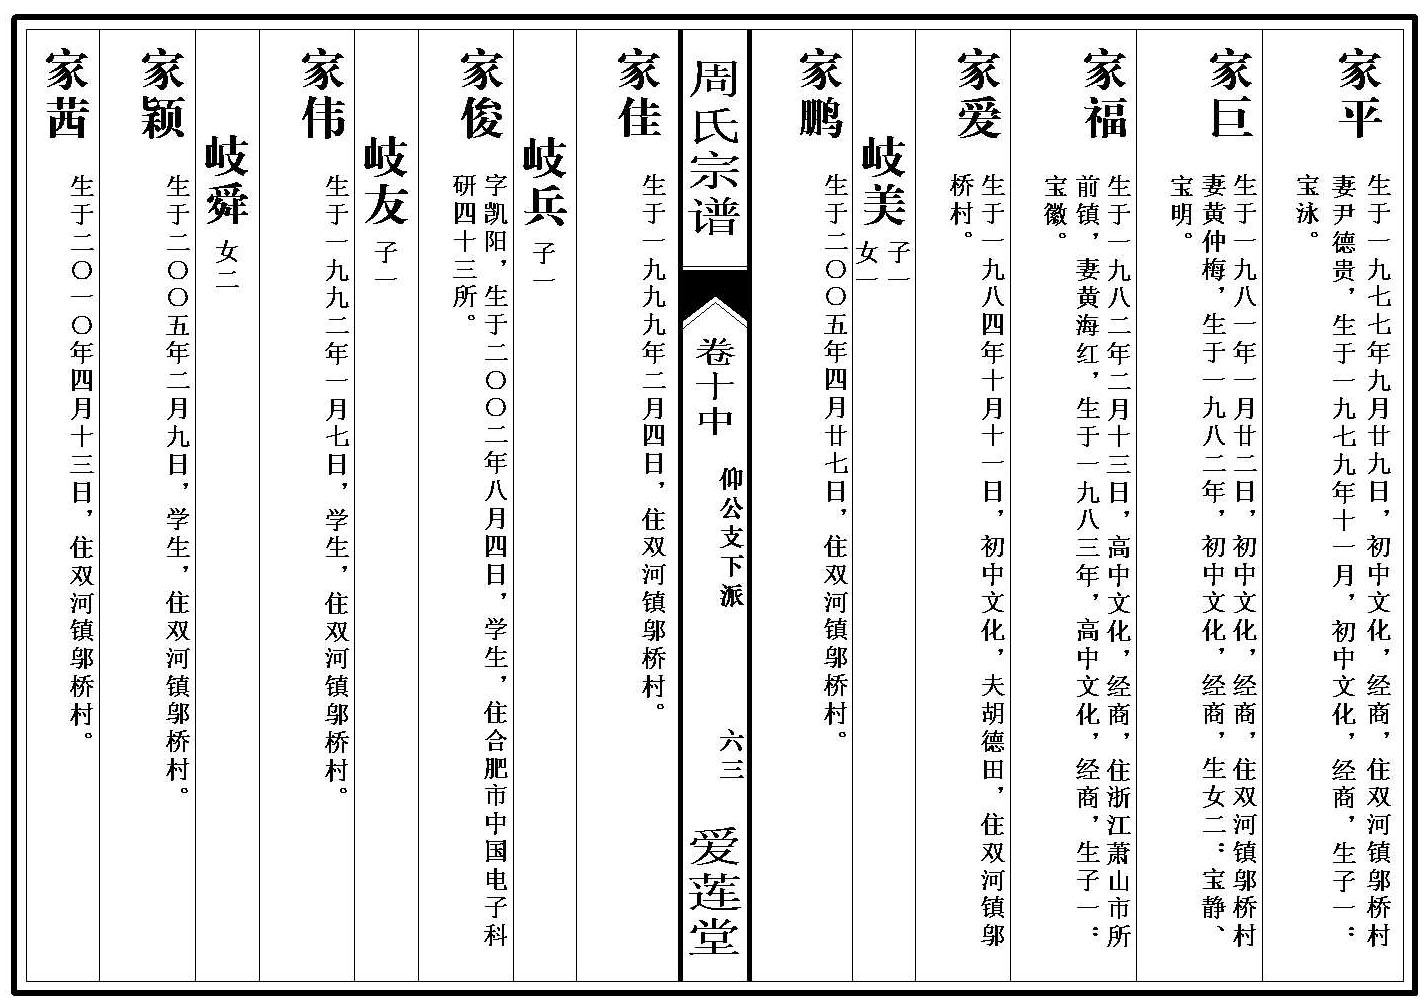 家平
生于一九七七年九月廿九日，初中文化，经商，住双河镇邬桥村
妻尹德贵，生于一九七九年十一月，初中文化，经商，生子一：
宝泳。
家巨
生于一九八一年一月廿二日，初中文化，经商，住双河镇邬桥村
妻黄仲梅，生于一九八二年，初中文化，经商，生女二：宝静、
宝明。
家福
生于一九八二年二月十三日，高中文化，经商，住浙江萧山市所
前镇，妻黄海红，生于一九八三年，高中文化，经商，生子一：
宝徽。
家爱
生于一九八四年十月十一日，初中文化，夫胡德田，住双河镇邬
桥村。
岐美
子一
女一
家鹏
生于二〇〇五年四月廿七日，住双河镇邬桥村。
周氏宗谱
卷十中
仰公支下派
六三
爱莲堂
家佳
生于一九九九年二月四日，住双河镇邬桥村。
岐兵
子一
家俊
字凯阳，生于二〇〇二年八月四日，学生，住合肥市中国电子科
研四十三所。
岐友
子一
家伟
生于一九九二年一月七日，学生，住双河镇邬桥村。
岐舜
女二
家颖
生于二〇〇五年二月九日，学生，住双河镇邬桥村。
家茜
生于二〇一〇年四月十三日，住双河镇邬桥村。